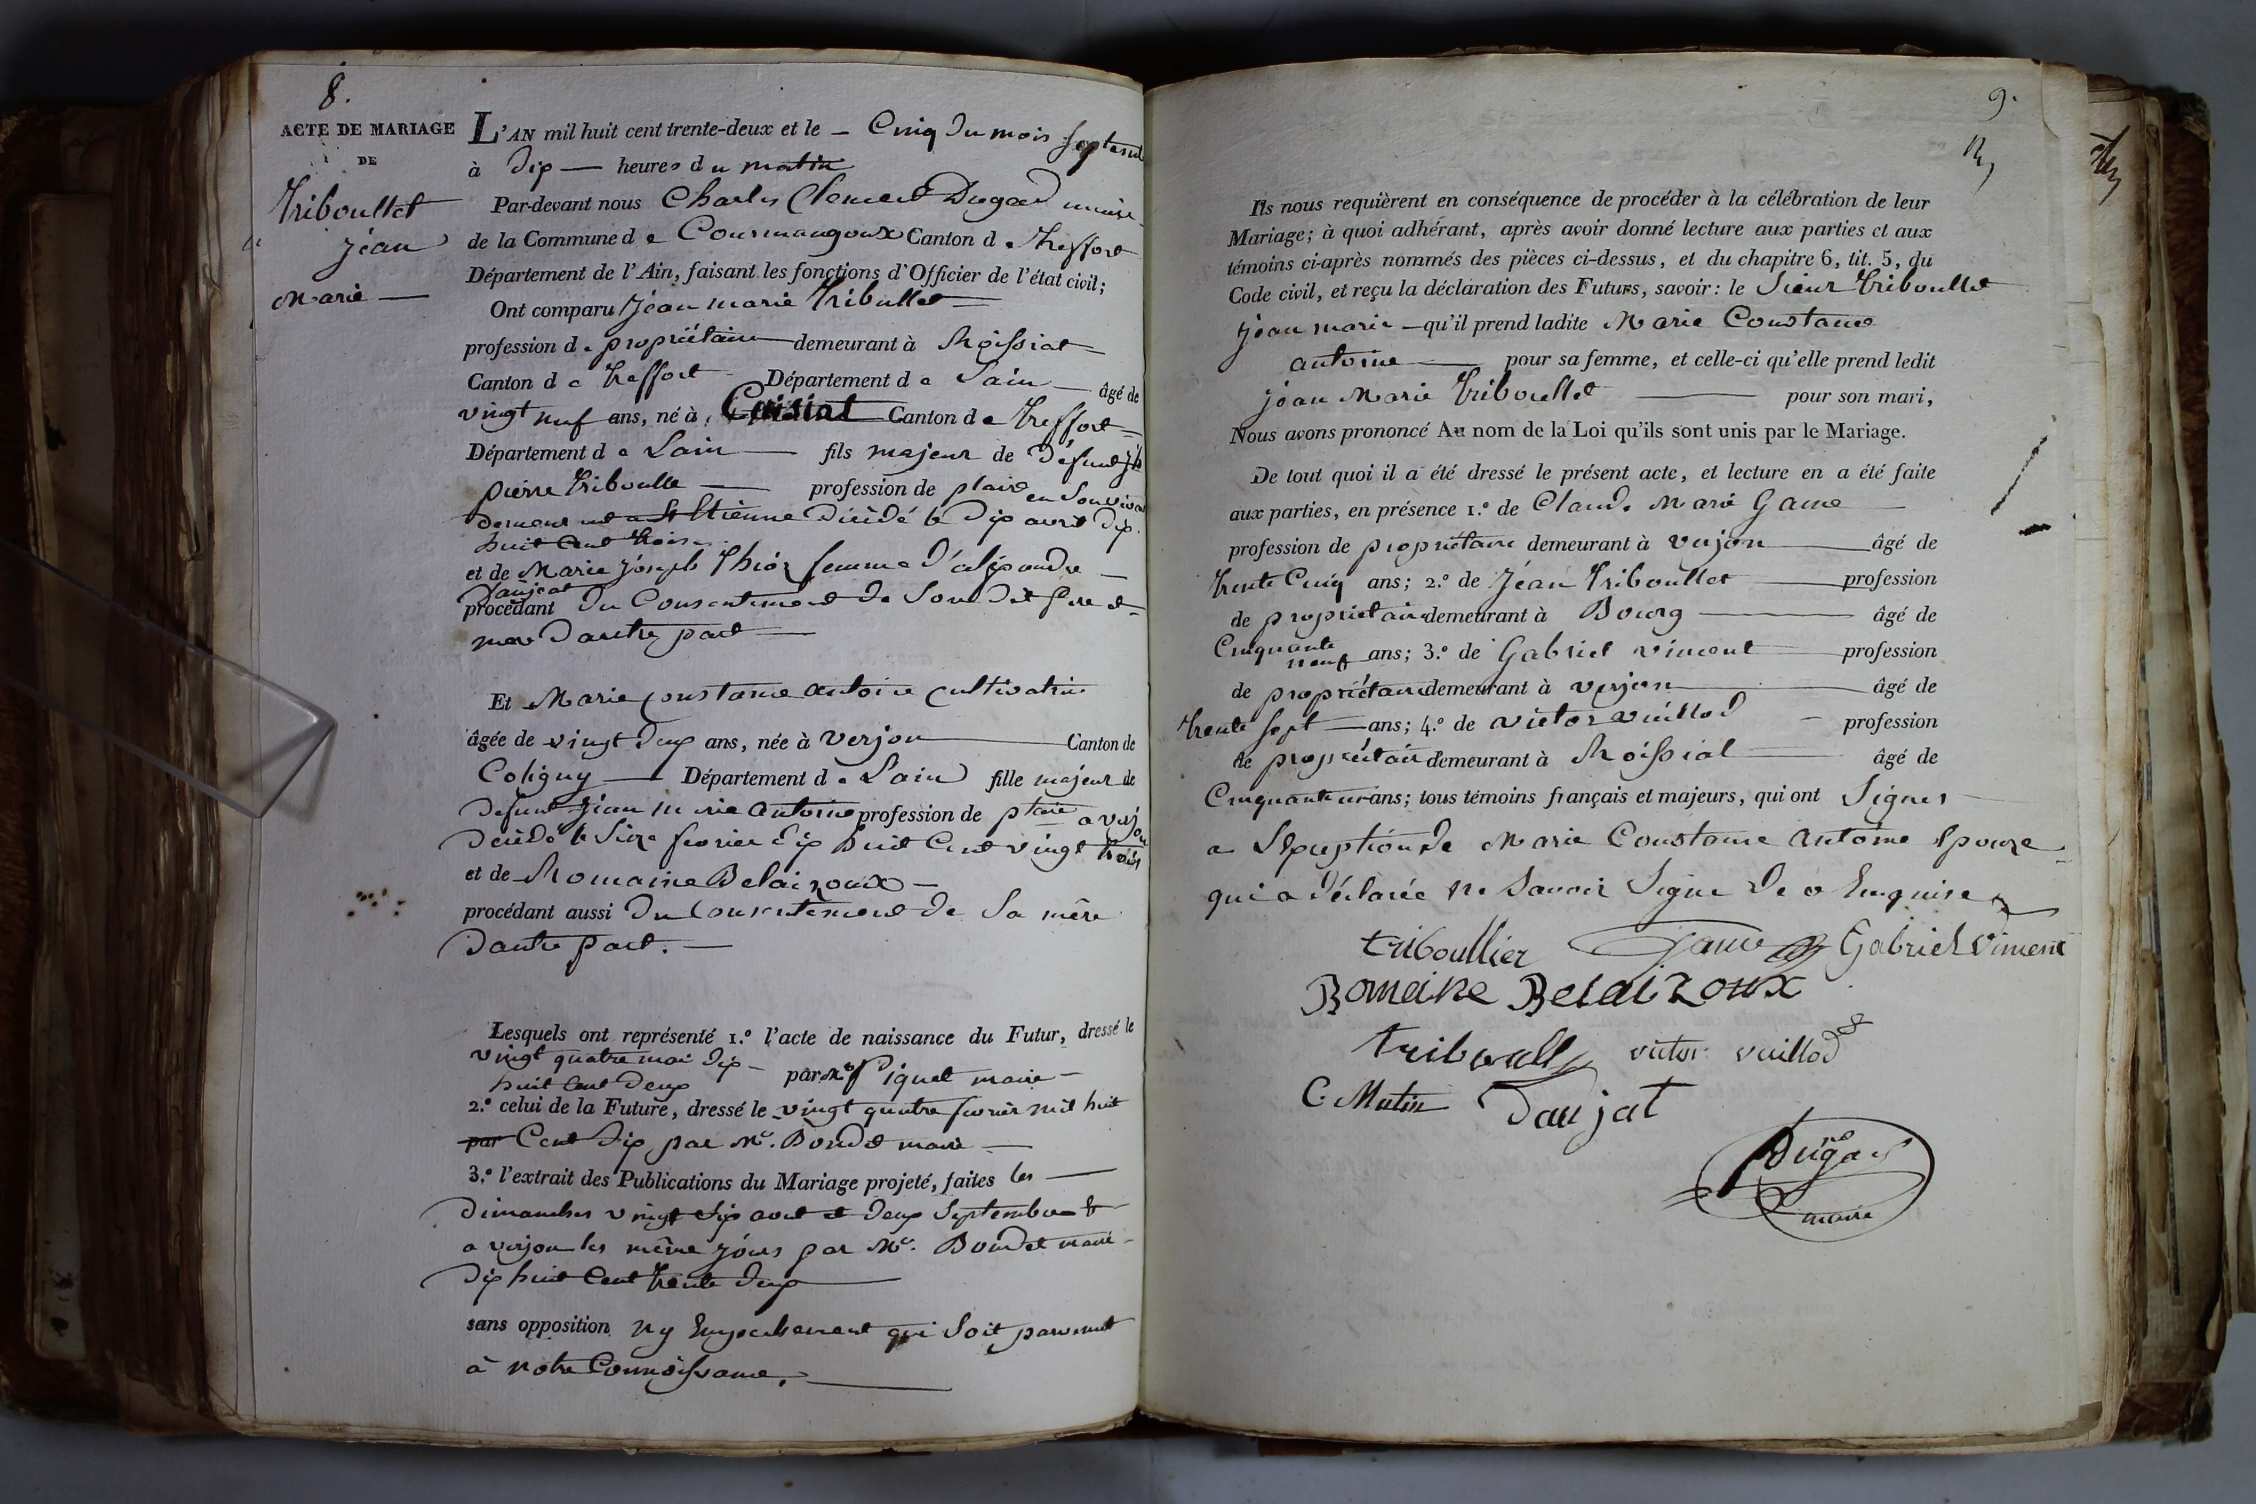 8.
ACTE DE MARIAGE
DE
Triboullet
Jean
Marie —
L'AN mil huit cent trente-deux et le — Cinq du mois Septemb
à dix — heures du matin
Par-devant nous Charles Clement Dugad maire
de la Commune de Courmangoux Canton de treffort
Département de l'Ain, faisant les fonctions d'Officier de l'état civil;
Ont comparu Jean marie Tribullet —
profession de propriétaire demeurant à Roissiat —
Canton de treffort Département de Lain — âgé de
vingt neuf ans, né à Cuisiat Canton de treffort —
Département de Lain — fils majeur de défunt
pierre triboulle — profession de ptaire en Son vivan
demeurant a St Etienne décédé le dix avril dix
huit Cent trois
et de Marie Joseph femme d'aléxandre —
Daujat
procédant du Consentement de Son dit pere et
mere dautre part —
Et Marie Constance antoine Cultivatrice
âgée de vingt deux ans, née à verjon — Canton de
Coligny — Département de Lain fille majeur de
defunt Jean marie antoine profession de ptaire a verjon
décédé le Seize fevrier dix huit Cent vingt trois
et de Romaine Belaizoux —
procédant aussi du Consentement de Sa mère
dautre part. —
Lesquels ont représenté 1.º l'acte de naissance du Futur, dressé le
vingt quatre mai dix —
huit Cent deux par Mr Piquet maire —
2.º celui de la Future, dressé le vingt quatre fevrier mil huit
par Cent dix par Mr. Bondet maire —
3.º l'extrait des Publications du Mariage projeté, faites les —
dimanches vingt Six aout et deux Septembre &
a verjon les même jours par Mr. Bondet maire —
dix huit Cent trente deux —
sans opposition ny Empechement qui Soit parvenut
à notre Connoissance. —
9.
Ils nous requièrent en conséquence de procéder à la célébration de leur
Mariage; à quoi adhérant, après avoir donné lecture aux parties et aux
témoins ci-après nommés des pièces ci-dessus, et du chapitre 6, tit. 5, du
Code civil, et reçu la déclaration des Futurs, savoir: le Sieur Triboullet
Jean marie — qu'il prend ladite Marie Constance
antoine — pour sa femme, et celle-ci qu'elle prend ledit
Jean Marie Triboullet — pour son mari,
Nous avons prononcé Au nom de la Loi qu'ils sont unis par le Mariage.
De tout quoi il a été dressé le présent acte, et lecture en a été faite
aux parties, en présence 1.º de Claude Marie Game —
profession de propriétaire demeurant à verjon — âgé de
trente Cinq ans; 2.º de Jéan Triboullet — profession
de propriétaire demeurant à Bourg — âgé de
Cinquante
neuf ans; 3.º de Gabriel viment — profession
de propriétaire demeurant à verjon — âgé de
trente Sept — ans; 4.º de victor vuillod — profession
de propriétair demeurant à Roissiat — âgé de
Cinquante un ans; tous témoins français et majeurs, qui ont Signer —
a Lexception de Marie Constance antoine Epouze
qui a déclarée ne Savoir Signe de ce Enquise
triboullier Game Gabriel Viment
Romaine Belaizoux
triboulle victor vuillod
C. Matin Daujat
Dugad
maire